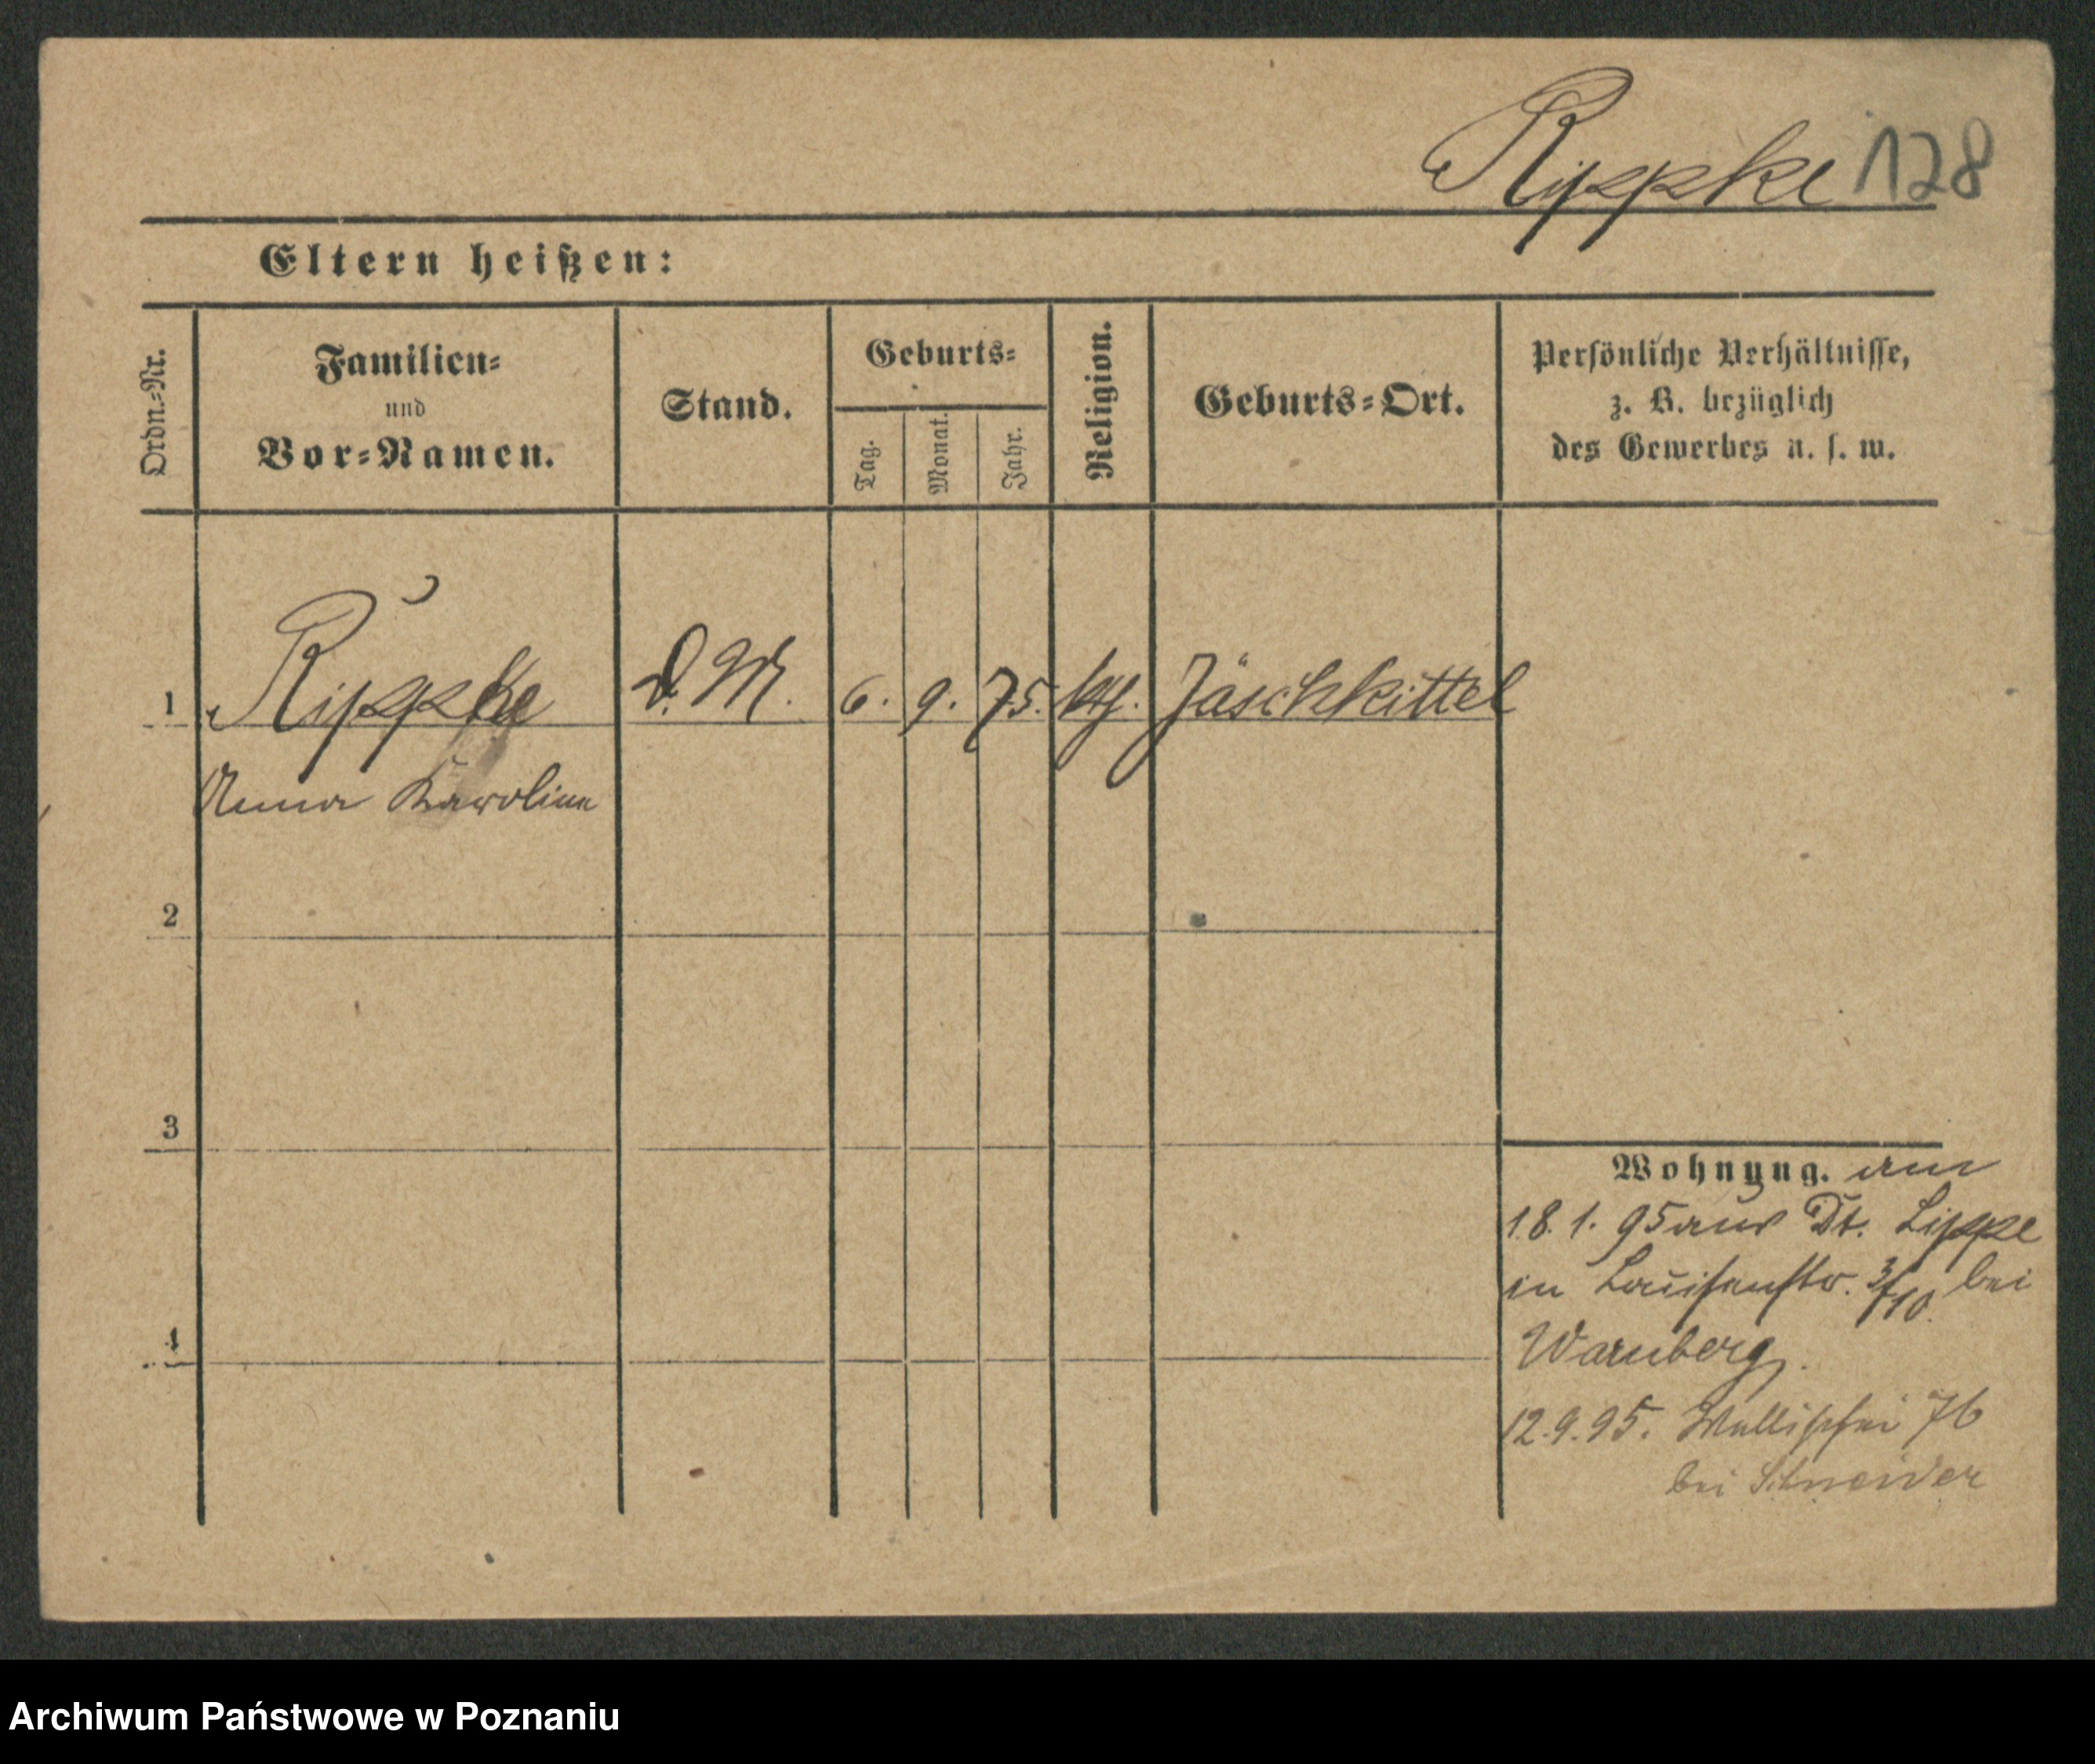 Rippke 128
Eltern heißen:
Ordn.-Nr.
Familien-
und
Vor-Namen.
Stand.
Geburts-
Tag.
Monat.
Jahr.
Religion.
Geburts-Ort.
Persönliche Verhältnisse,
z. B. bezüglich
des Gewerbes u. s. w.
1 Rippke D. M. 6. 9. 75. kth. Jäschkittel
Anna Karolina
2
3
4
Wohnung. am
18. 1. 95 aus Dt. Lippe
in Louisenstr. 3/10 bei
Warnberg.
12.9.95. Wallischei 76
bei Schneider
Archiwum Państwowe w Poznaniu